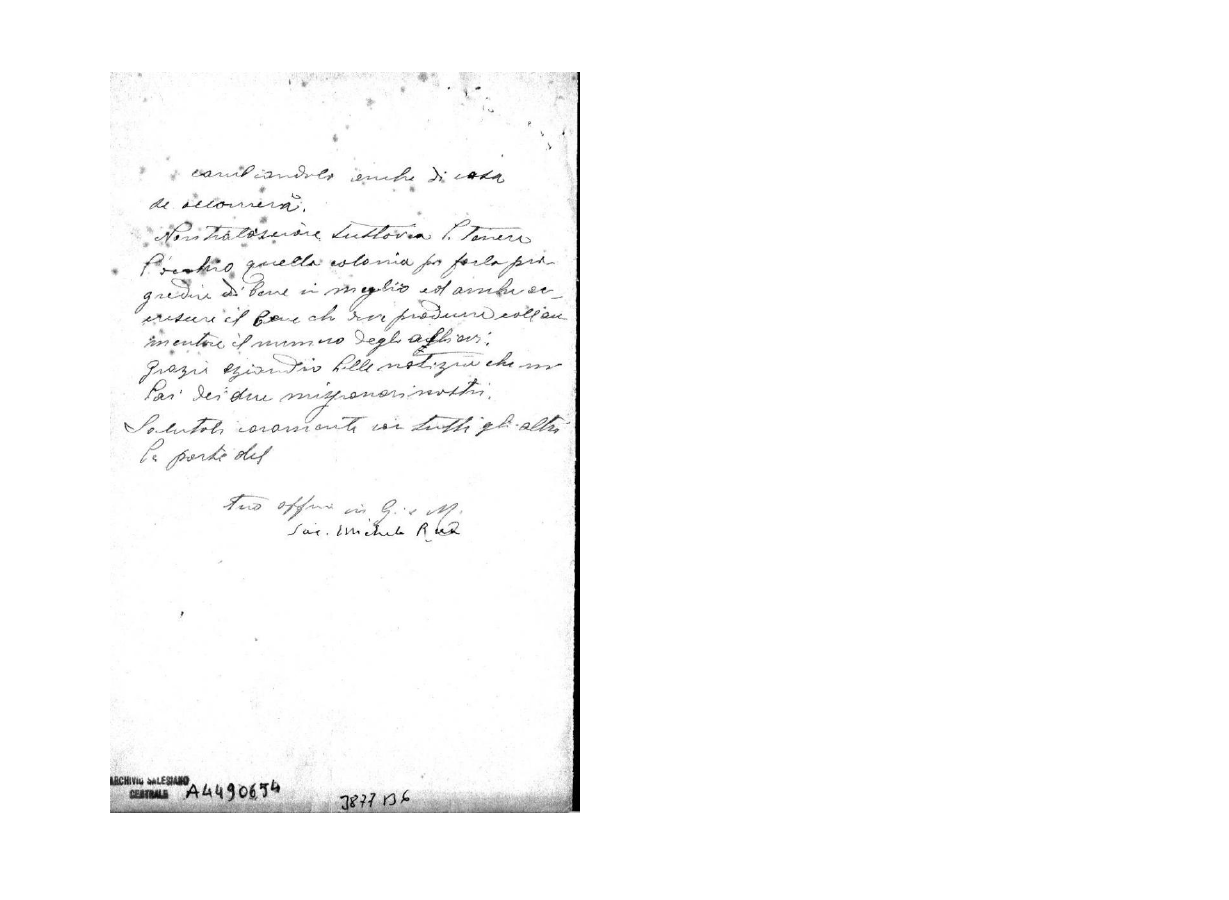 cambiandolo anche di casa
se occorrerà.
Non tralasciare tuttavia di tenere
d'occhio quella colonia per farla pro-
gredire di bene in meglio ed anche ac-
crescere il bene che deve produrre coll'au
mentare il numero degli allievi.
Grazie eziandio delle notizie che mi
dai dei due missionari nostri.
Salutali caramente con tutti gli altri
da parte del
tuo aff.mo in G. e M.
Sac. Michele Rua
ARCHIVIO SALESIANO
CENTRALE
A4490654
3877 B6